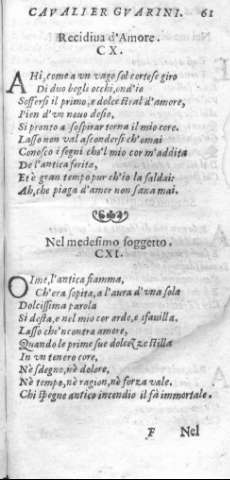 CAVALIER GVARINI. 61
Recidiua d'Amore.
CX.
AHi, come a vn vago sol cortese giro
Di duo begli occhi, ond'io
Soffersi il primo, e dolce stral d'amore,
Pien d'vn nouo desio,
Sì pronto a sospirar torna il mio core.
Lasso non val ascondersi ch'omai
Conosco i segni che'l mio cor m'addita
De l'antica ferita,
Et è gran tempo pur ch'io la saldai:
Ah, che piaga d'amor non sana mai.
Nel medesimo soggetto.
CXI.
OIme, l'antica fiamma,
Ch'era sopita, a l'aura d'vna sola
Dolcissima parola
Si desta, e nel mio cor arde, e sfauilla.
Lasso che'ncontra amore,
Quando le prime sue dolcezze stilla
In vn tenero core,
Nè sdegno, nè dolore,
Nè tempo, nè ragion, nè forza vale.
Chi spegne antico incendio il fà immortale.
F Nel